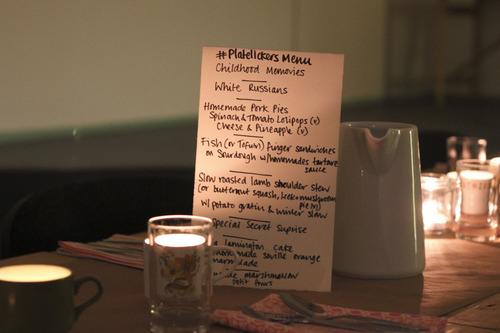 #Platelickers Menu
Childhood Memories
White Russians
Homemade Pork Pies
Spinach & Tomato Lolipops (v)
Cheese & Pineapple (v)
Fish (or Tofu v) finger sandwiches
on Sourdough w/homemade tartare
sauce
Slow roasted lamb shoulder stew
(or butternut squash, leek & mushroom
pie v)
w/ potato gratin & winter slaw
Special Secret Suprise
lamington cake
made saville orange
marmalade
marshmallow
petit fours